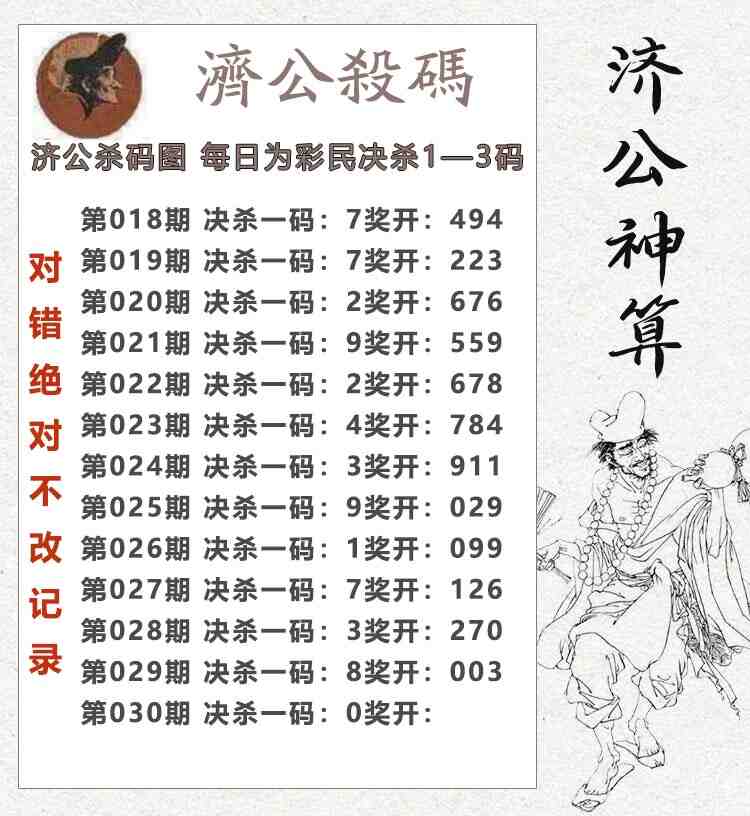 濟公殺碼
济公杀码图 每日为彩民决杀1—3码
第018期 决杀一码：7奖开：494
第019期 决杀一码：7奖开：223
第020期 决杀一码：2奖开：676
第021期 决杀一码：9奖开：559
第022期 决杀一码：2奖开：678
第023期 决杀一码：4奖开：784
第024期 决杀一码：3奖开：911
第025期 决杀一码：9奖开：029
第026期 决杀一码：1奖开：099
第027期 决杀一码：7奖开：126
第028期 决杀一码：3奖开：270
第029期 决杀一码：8奖开：003
第030期 决杀一码：0奖开：
对错绝对不改记录
济公神算